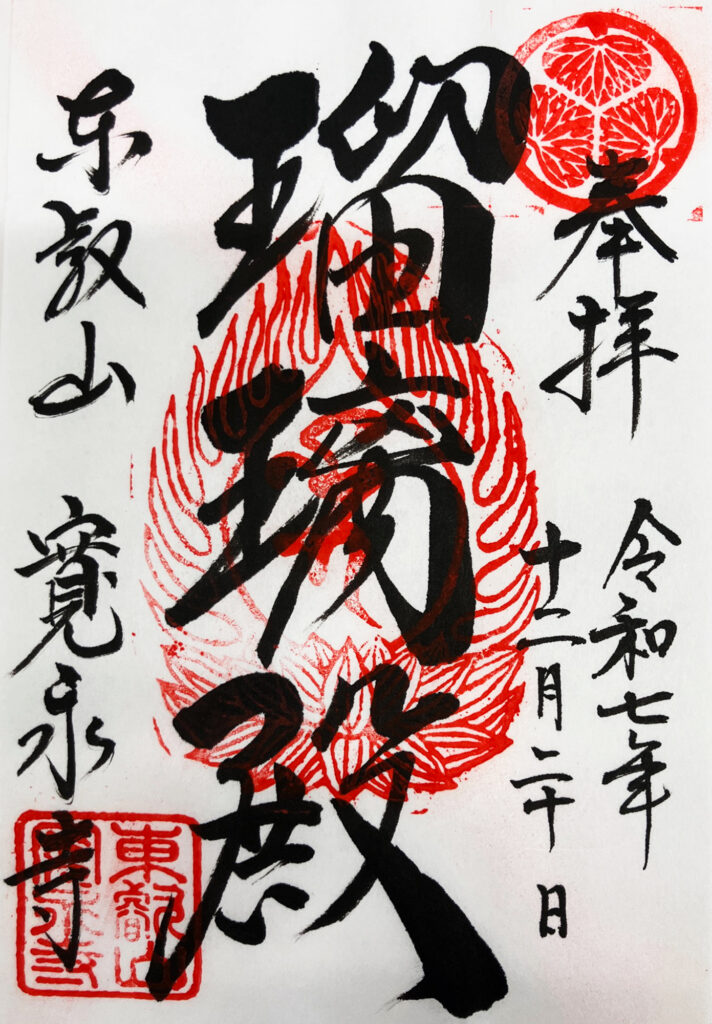 奉拝
令和七年
十二月二十日
瑠璃殿
東叡山 寛永寺
東叡山
寛永寺